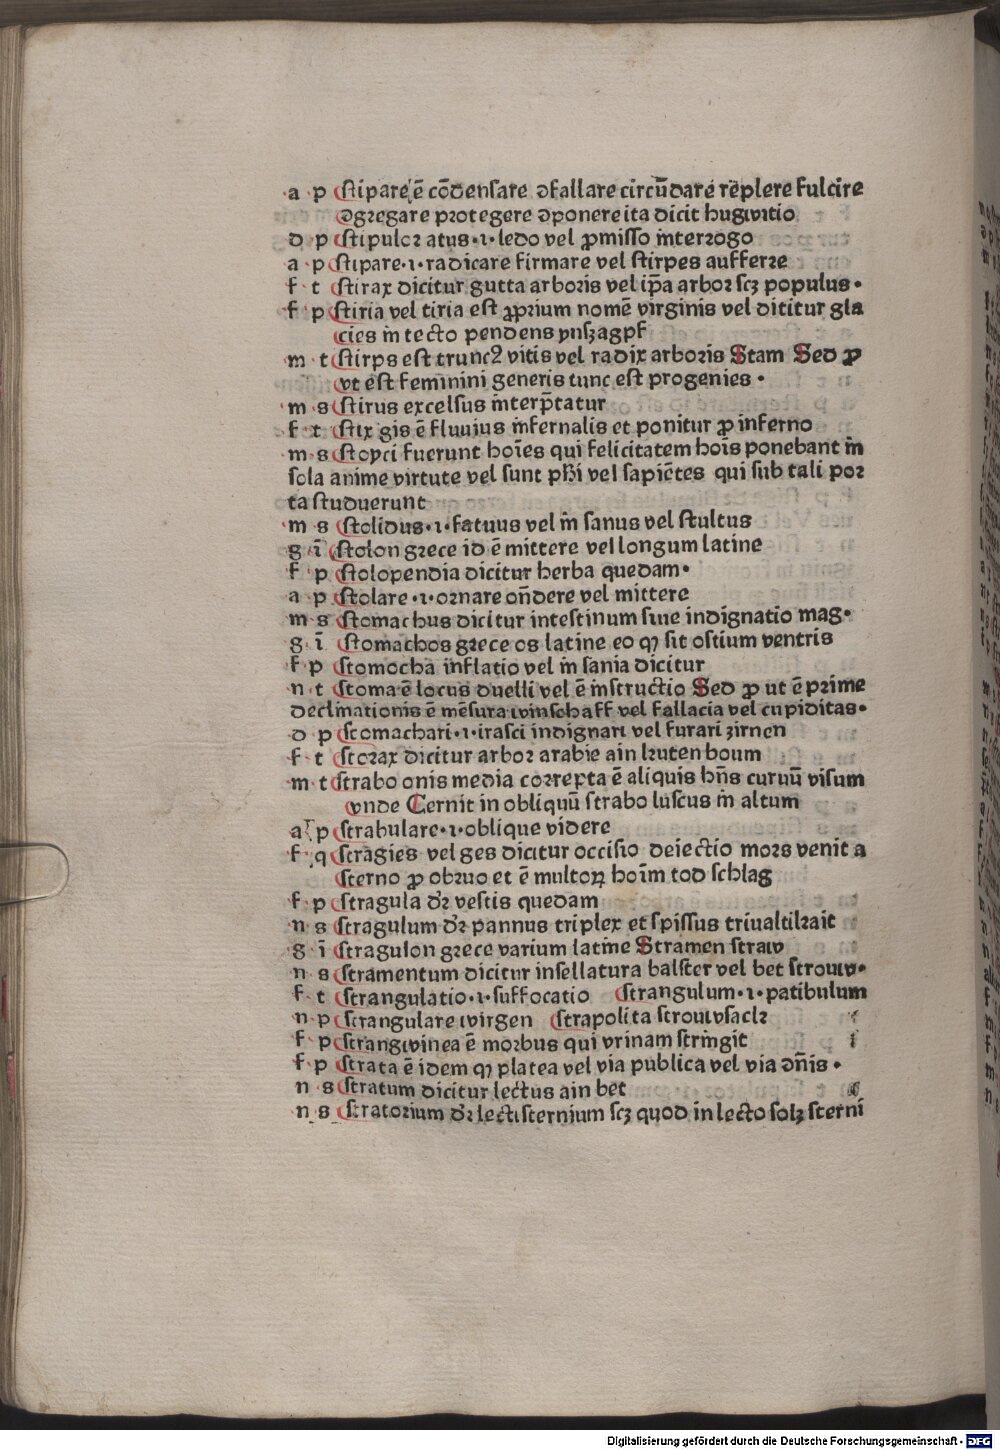 a p Stipare ē cōdensare ɔfallare circūdare rēplere fulcire
ɔgregare protegere ɔponere ita dicit hugwitio
d p Stipulor atus ·i· ledo vel ꝓmisso interrogo
a p Stipare ·i· radicare firmare vel stirpes aufferre
f t Stirax dicitur gutta arboris vel ip̄a arbor scꝫ populus ·
f p Stiria vel tiria est ꝓprium nomē virginis vel dititur gla
cies in tecto pendens ynsꝫagpf
m t Stirps est truncꝰ vitis vel radix arboris Stam Sed ꝓ
vt est feminini generis tunc est progenies ·
m s Stirus excelsus interp̄tatur
f t Stix gis ē fluuius infernalis et ponitur ꝓ inferno
m s Stoyci fuerunt hoīes qui felicitatem hoīs ponebant in
sola anime virtute vel sunt phi vel sapiētes qui sub tali por
ta studuerunt
m s Stolidus ·i· fatuus vel in sanus vel stultus
g ī Stolon grece id ē mittere vel longum latine
f p Stolopendia dicitur herba quedam ·
a p Stolare ·i· ornare on̄dere vel mittere
m s Stomachus dicitur intestinum siue indignatio mag ·
g ī Stomachos grece os latine eo ꝙ sit ostium ventris
f p Stomocha inflatio vel in sania dicitur
n t Stoma ē locus duelli vel ē instructio Sed ꝓ ut ē prime
declinationis ē mēsura winschaff vel fallacia vel cupiditas ·
d p Stomachari ·i· irasci indignari vel furari zirnen
f t Storax dicitur arbor arabie ain krutenboum
m t Strabo onis media correpta ē aliquis hn̄s curuū visum
vnde Cernit in obliquū strabo luscus in altum
a p Strabulare ·i· oblique videre
f q Stragies vel ges dicitur occisio deiectio mors venit a
sterno ꝓ obruo et ē multoꝝ hoīm tod schlag
f p Stragula dr̄ vestis quedam
n s Stragulum dr̄ pannus triplex et spissus triualtikait
g i Stragulon grece varium latine Stramen straw
n s Stramentum dicitur insellatura balster vel bet strouw ·
f t Strangulatio ·i· suffocatio Strangulum ·i· patibulum
n p Strangulare wirgen Strapolita strouwsack
f p Strangwinea ē morbus qui vrinam stringit
f p Strata ē idem ꝙ platea vel via publica vel via dn̄is ·
n s Stratum dicitur lectus ain bet
n s Stratorium dr̄ lectisternium scꝫ quod in lecto solꝫ sterni
Digitalisierung gefördert durch die Deutsche Forschungsgemeinschaft - DFG